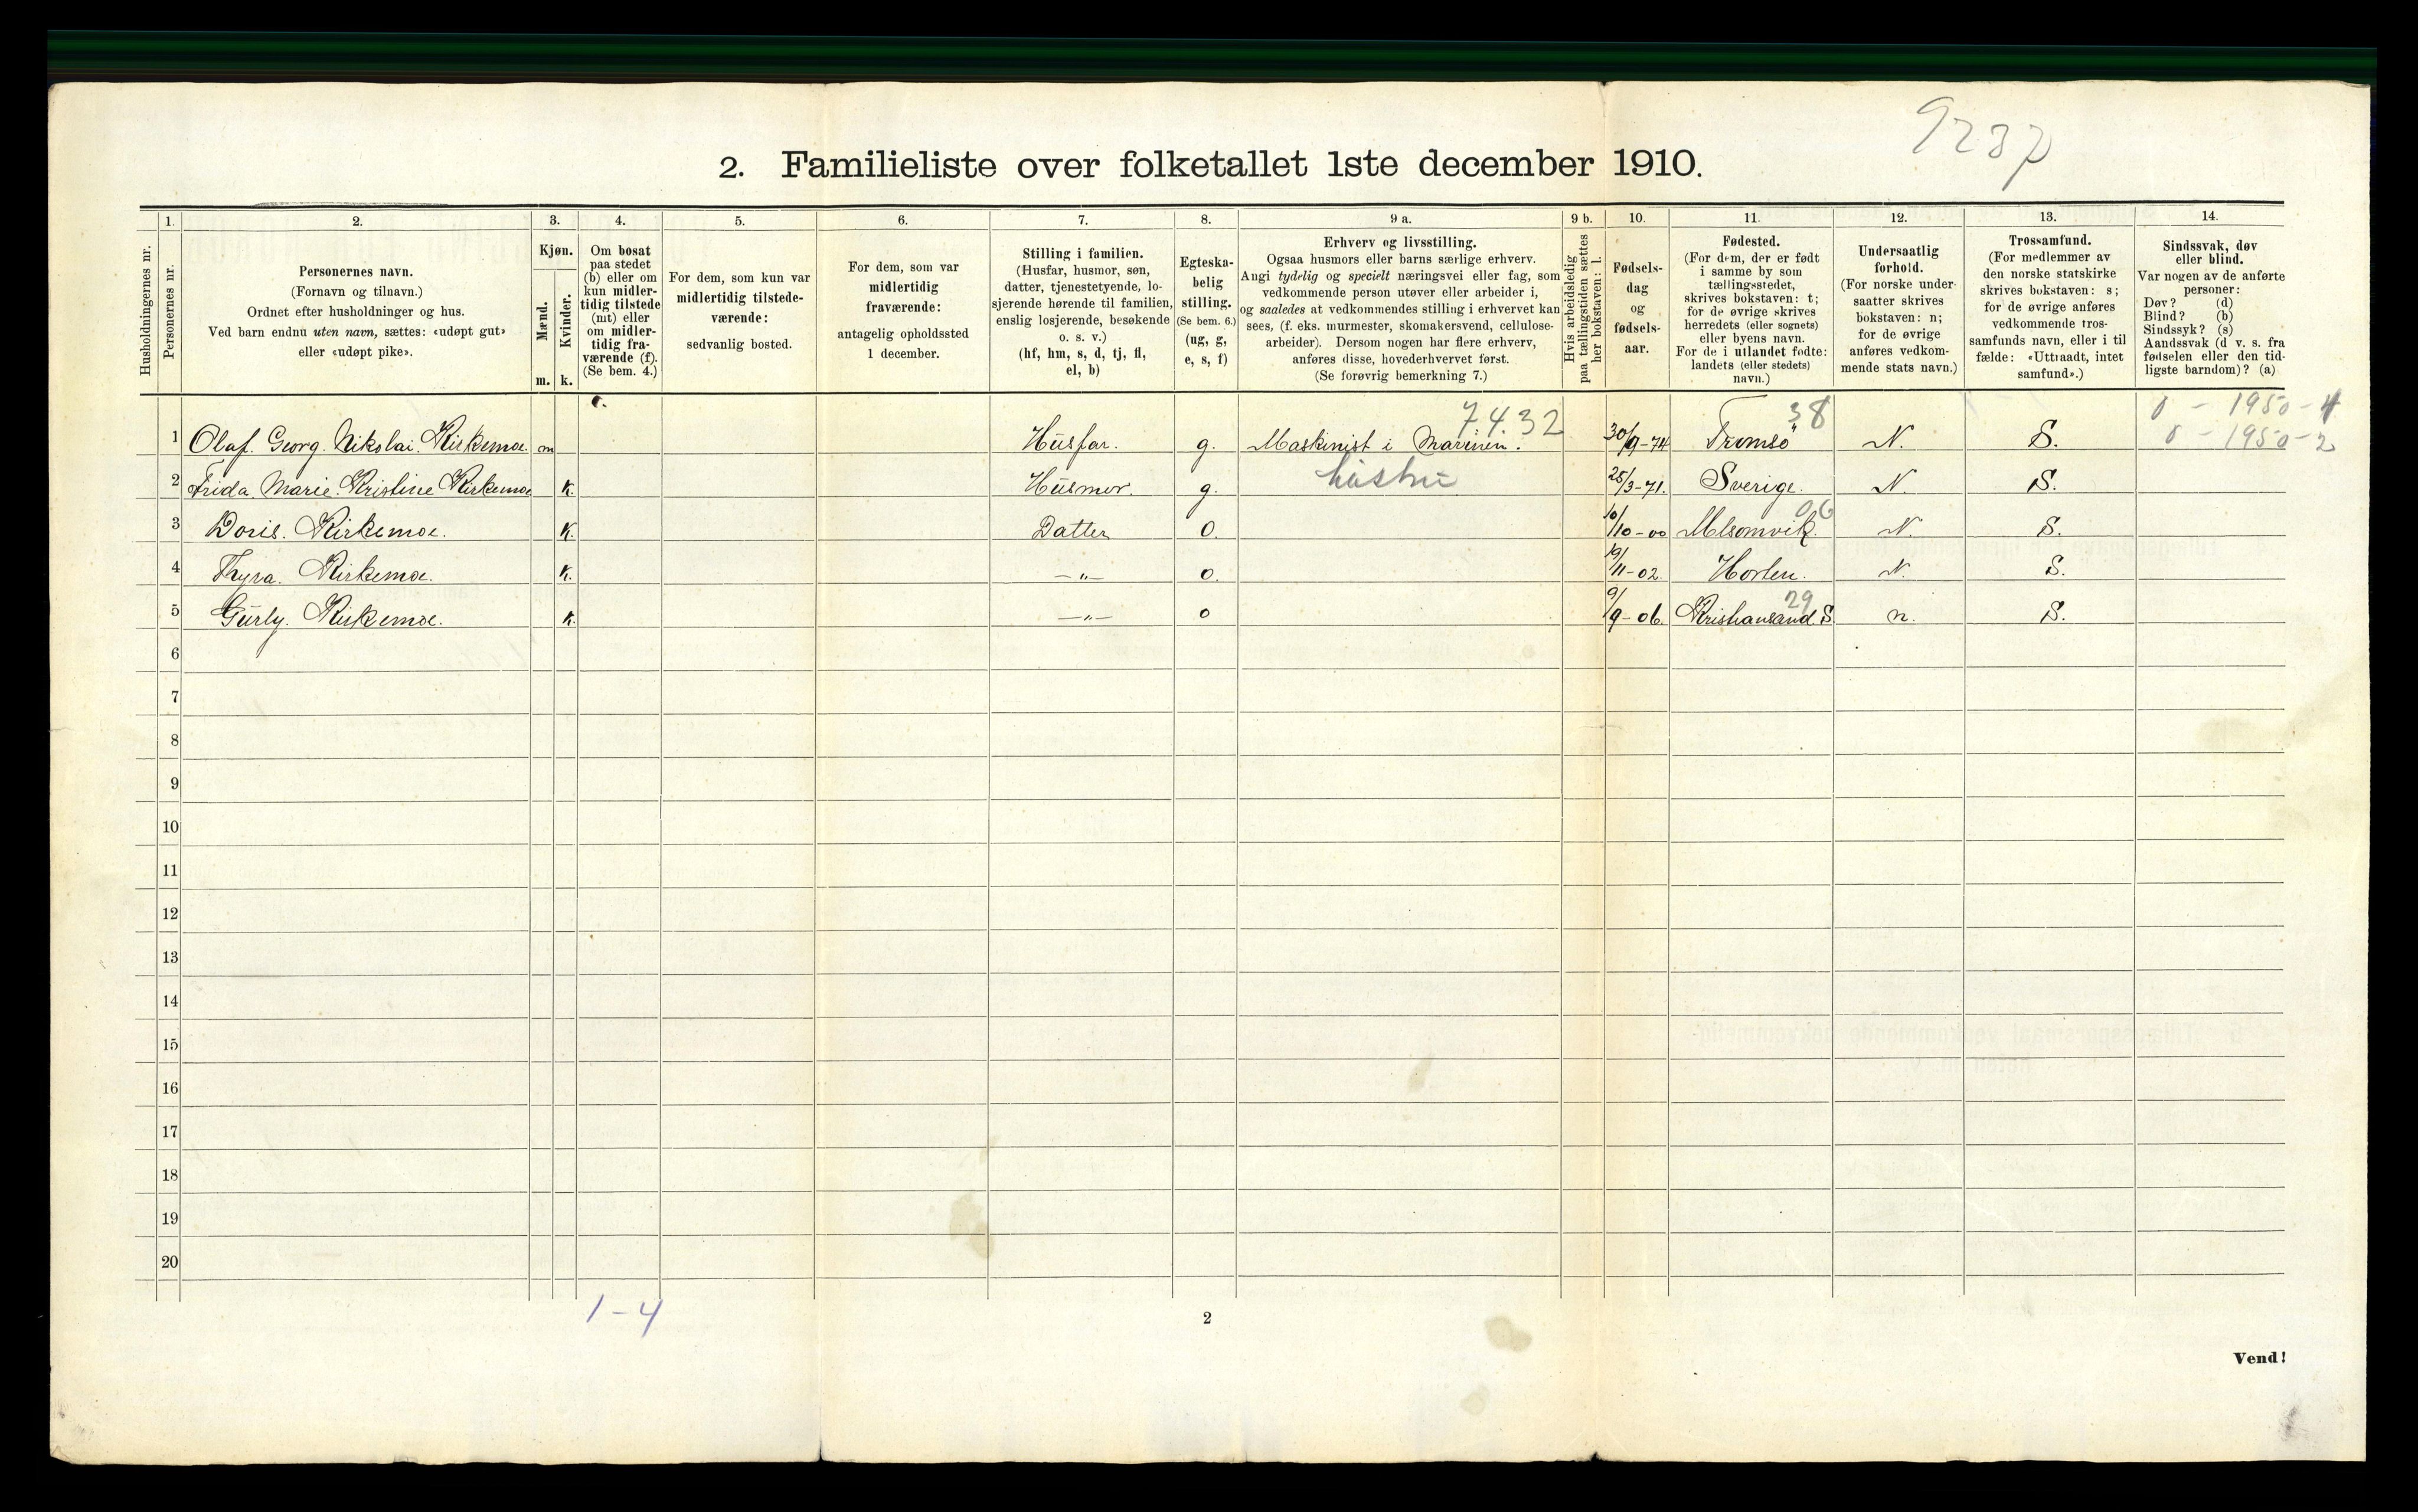 9237
2. Familieliste over folketallet 1ste december 1910.
Husholdningernes nr.
1.
Personernes nr.
2.
Personernes navn.
(Fornavn og tilnavn.)
Ordnet efter husholdninger og hus.
Ved barn endnu uten navn, sættes: «udøpt gut»
eller «udøpt pike».
3.
Kjøn.
Mænd.
Kvinder.
m. k.
4.
Om bosat
paa stedet
(b) eller om
kun midler-
tidig tilstede
(mt) eller
om midler-
tidig fra-
værende (f).
(Se bem. 4.)
5.
For dem, som kun var
midlertidig tilstede-
værende:
sedvanlig bosted.
6.
For dem, som var
midlertidig
fraværende:
antagelig opholdssted
1 december.
7.
Stilling i familien.
(Husfar, husmor, søn,
datter, tjenestetyende, lo-
sjerende hørende til familien,
enslig losjerende, besøkende
o. s. v.)
(hf, hm, s, d, tj, fl,
el, b)
8.
Egteska-
belig
stilling.
(Se bem. 6.)
(ug, g,
e, s, f)
9 a.
Erhverv og livsstilling.
Ogsaa husmors eller barns særlige erhverv.
Angi tydelig og specielt næringsvei eller fag, som
vedkommende person utøver eller arbeider i,
og saaledes at vedkommendes stilling i erhvervet kan
sees, (f. eks. murmester, skomakersvend, cellulose-
arbeider). Dersom nogen har flere erhverv,
anføres disse, hovederhvervet først.
(Se forøvrig bemerkning 7.)
9 b.
Hvis arbeidsledig
paa tællingstiden sættes
her bokstaven: l.
10.
Fødsels-
dag
og
fødsels-
aar.
11.
Fødested.
(For dem, der er født
i samme by som
tællingsstedet,
skrives bokstaven: t;
for de øvrige skrives
herredets (eller sognets)
eller byens navn.
For de i utlandet fødte:
landets (eller stedets)
navn.)
12.
Undersaatlig
forhold.
(For norske under-
saatter skrives
bokstaven: n;
for de øvrige
anføres vedkom-
mende stats navn.)
13.
Trossamfund.
(For medlemmer av
den norske statskirke
skrives bokstaven: s;
for de øvrige anføres
vedkommende tros-
samfunds navn, eller i til
fælde: «Uttraadt, intet
samfund».)
14.
Sindssvak, døv
eller blind.
Var nogen av de anførte
personer:
Døv? (d)
Blind? (b)
Sindssyk? (s)
Aandssvak (d v. s. fra
fødselen eller den tid-
ligste barndom)? (a)
7432 38 0 - 1950 - 4
1 Olaf. Georg. Nikolai. Kirkemoe. m Husfar. g. Maskinist i Marinen. 30/9-74 Tromsö N. S. 0 - 1950 - 2
2 Frida. Marie. Kristine Kirkemoe k. Husmor. g. hustru 25/3-71. Sverige. N. S.
06
3 Doris. Kirkemoe. k. Datter O. 10/10-00 Melsomvik. N. S.
4 Thyra. Kirkemoe. k. —„— O. 19/11-02. Horten. N. S.
29
5 Gurly. Kirkemoe. k. —„— O 9/9-06. Kristiansand. S n. S.
6
7
8
9
10
11
12
13
14
15
16
17
18
19
20
1-4
2
Vend!